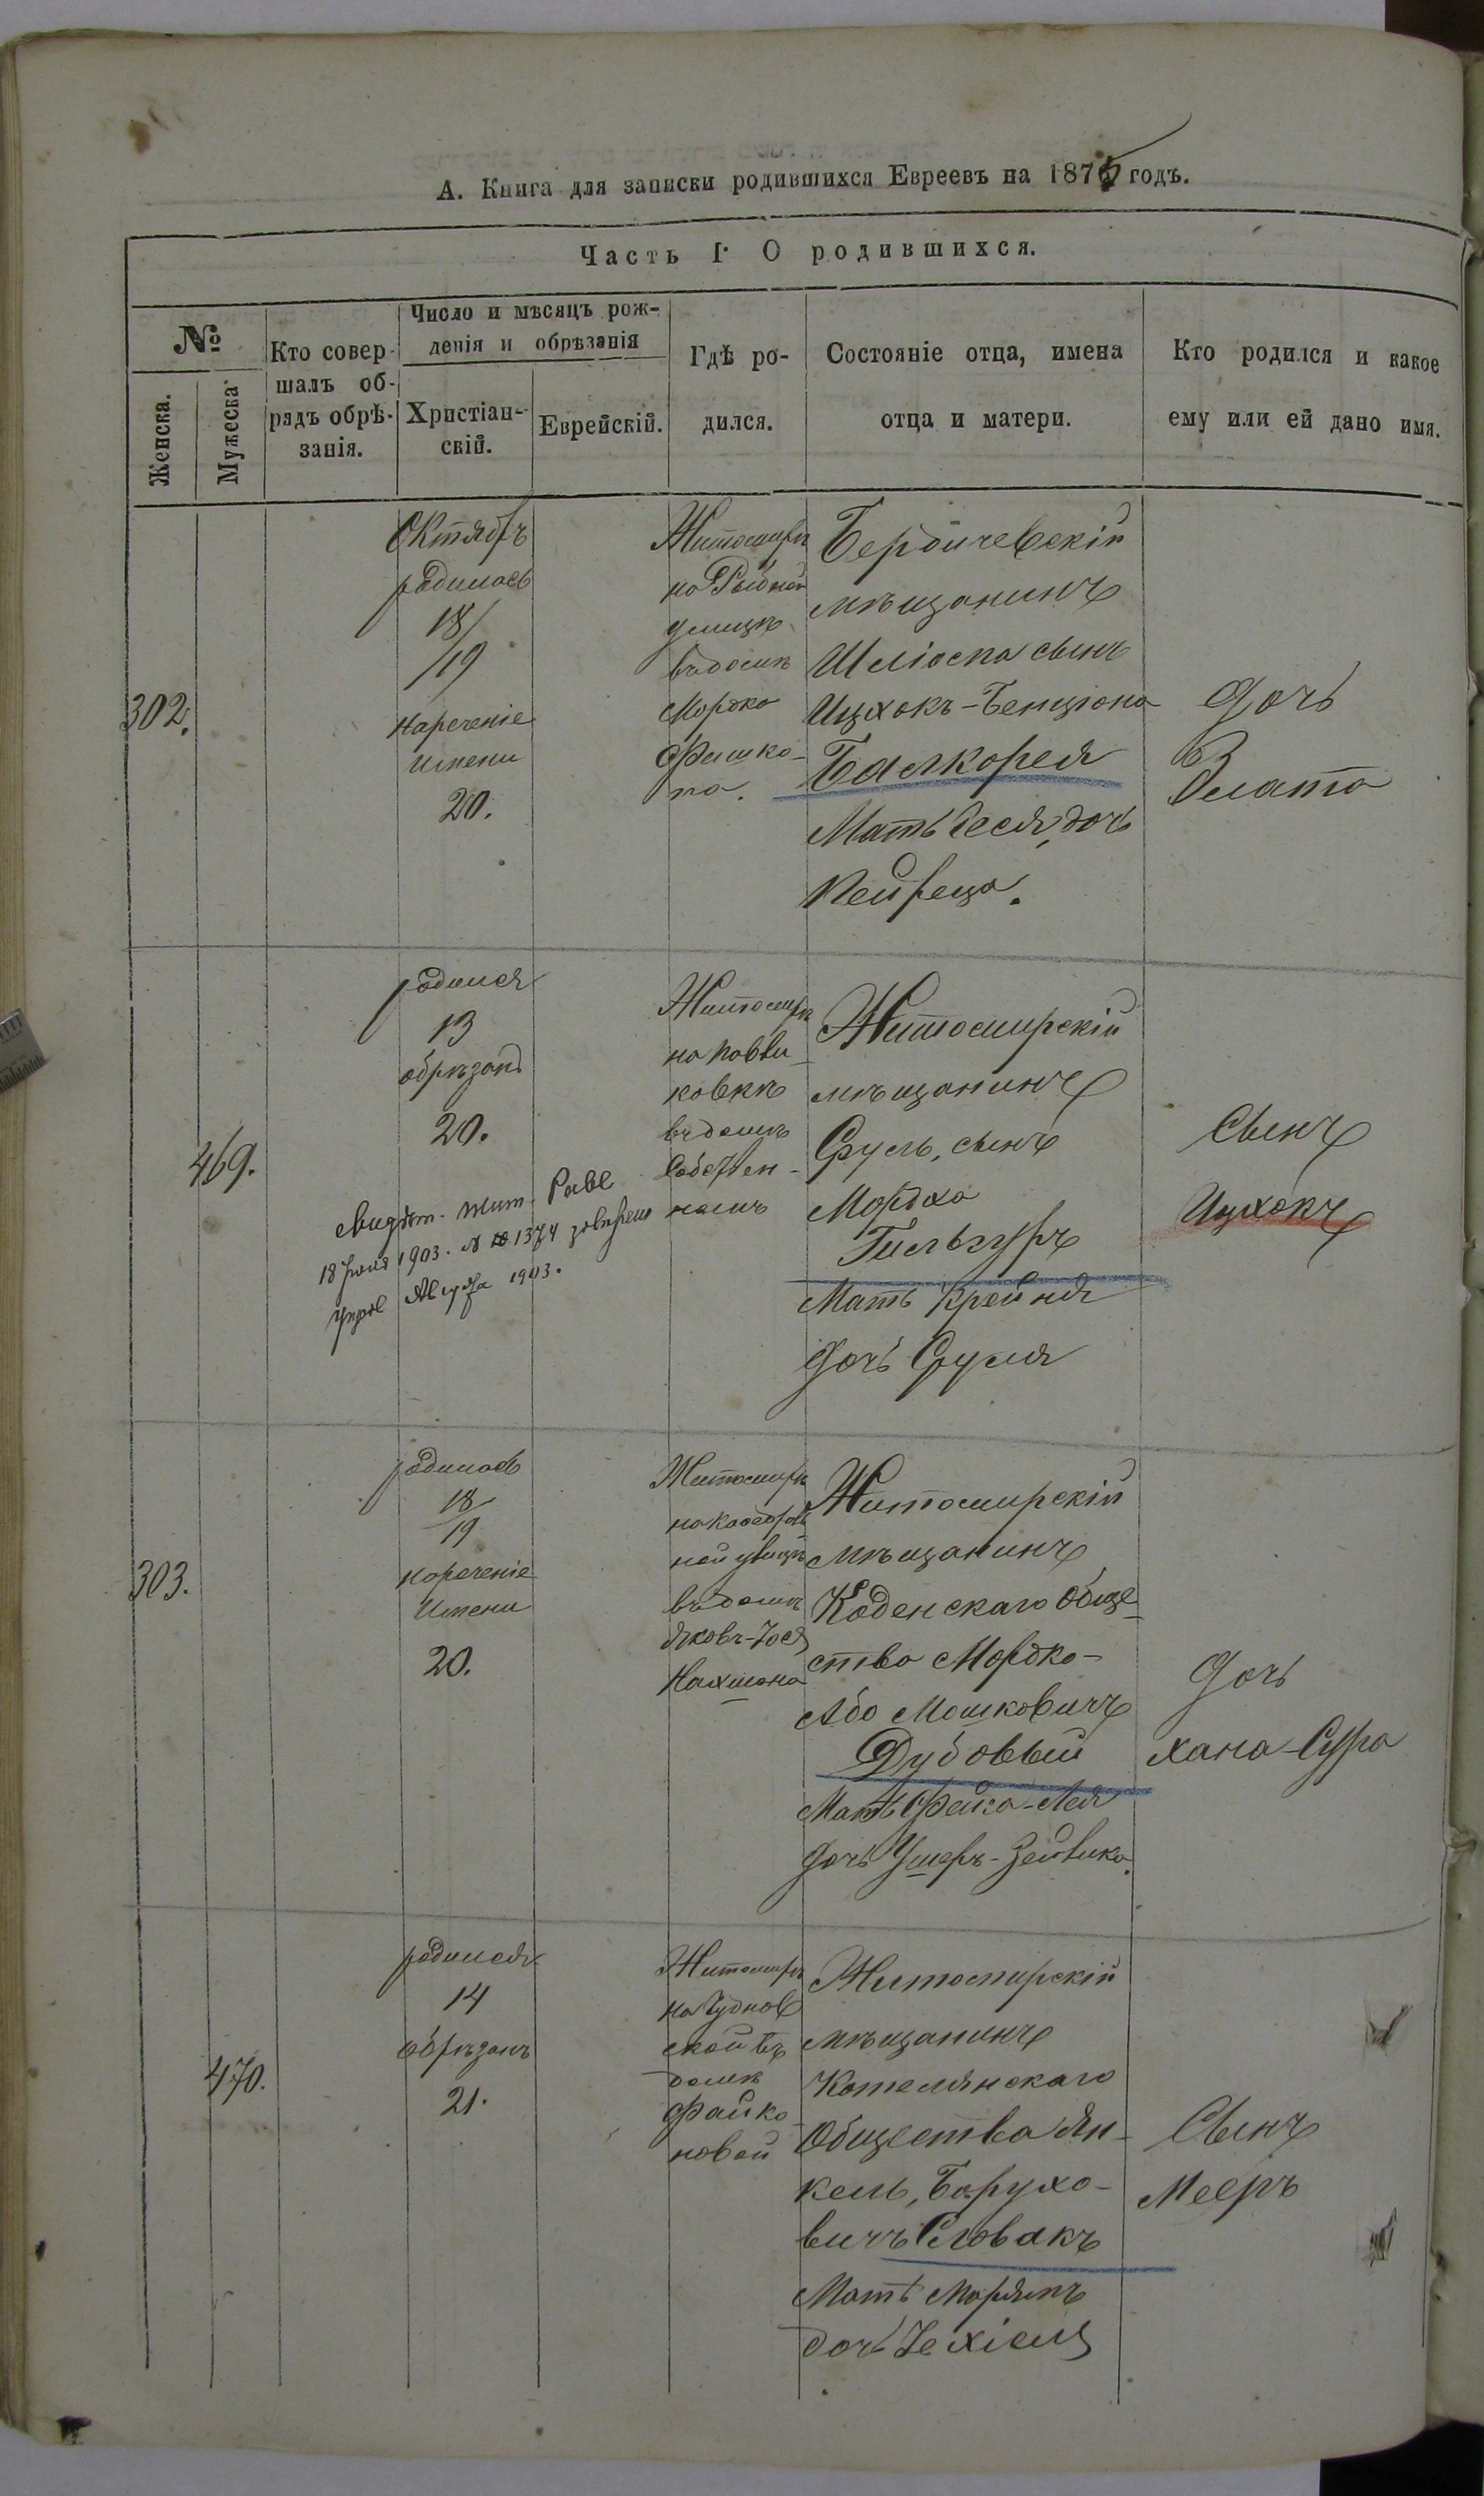 А. Книга для записки родившихся Евреевъ на 1875 годъ.
Часть I. О родившихся.
№
Женска.
Мужеска
Кто совер-
шалъ об-
рядъ обрѣ-
занія.
Число и мѣсяцъ рож-
денія и обрѣзанія
Христіан-
скій.
Еврейскій.
Гдѣ ро-
дился.
Состояніе отца, имена
отца и матери.
Кто родился и какое
ему или ей дано имя.
302.
Октябрь
родилась
18/
/19
нареченіе
имени
20.
Житомиръ
на Рыбной
улицѣ
въ домѣ
Мордко
Фишма-
на.
Бердичевскій
мѣщанинъ
Шліома сынъ
Ицхокъ-Бенціона
Балкорея
Мать Песя, дочь
Пейреца.
Дочь
Злата
469.
родился
13
обрѣзанъ
20.
Свидѣт. Жит. Равв
18 Іюля 1903. № 1374 завѣрено
Управ Августа 1903.
Житомиръ
на Павли-
ковкѣ
въ домѣ
Собствен-
номъ
Житомирскій
мѣщанинъ
Сруль, сынъ
Мордха
Гильзуръ
Мать Крейня
дочь Сруля
Сынъ
Ицхокъ
303.
родилась
18
19
нареченіе
Имени
20.
Житомиръ
на Кафедраль
ной улицѣ
въ домѣ
Яковъ-Іося
Нахмана
Житомирскій
мѣщанинъ
Коденскаго Обще-
ства Мордко-
Або Мошковичъ
Дубовый
Мать Фейга-Лея
дочь Ушеръ-Зейвика.
Дочь
Хана-Сура
470.
родился
14
обрѣзанъ
21.
Житомиръ
на Чуднов
ской въ
домѣ
Файко-
новой
Житомирскій
мѣщанинъ
Котелянскаго
Общества Ян-
кель, Барухо-
вичъ Словакъ
Мать Марьямъ
дочь Іехіеля
Сынъ
Мееръ